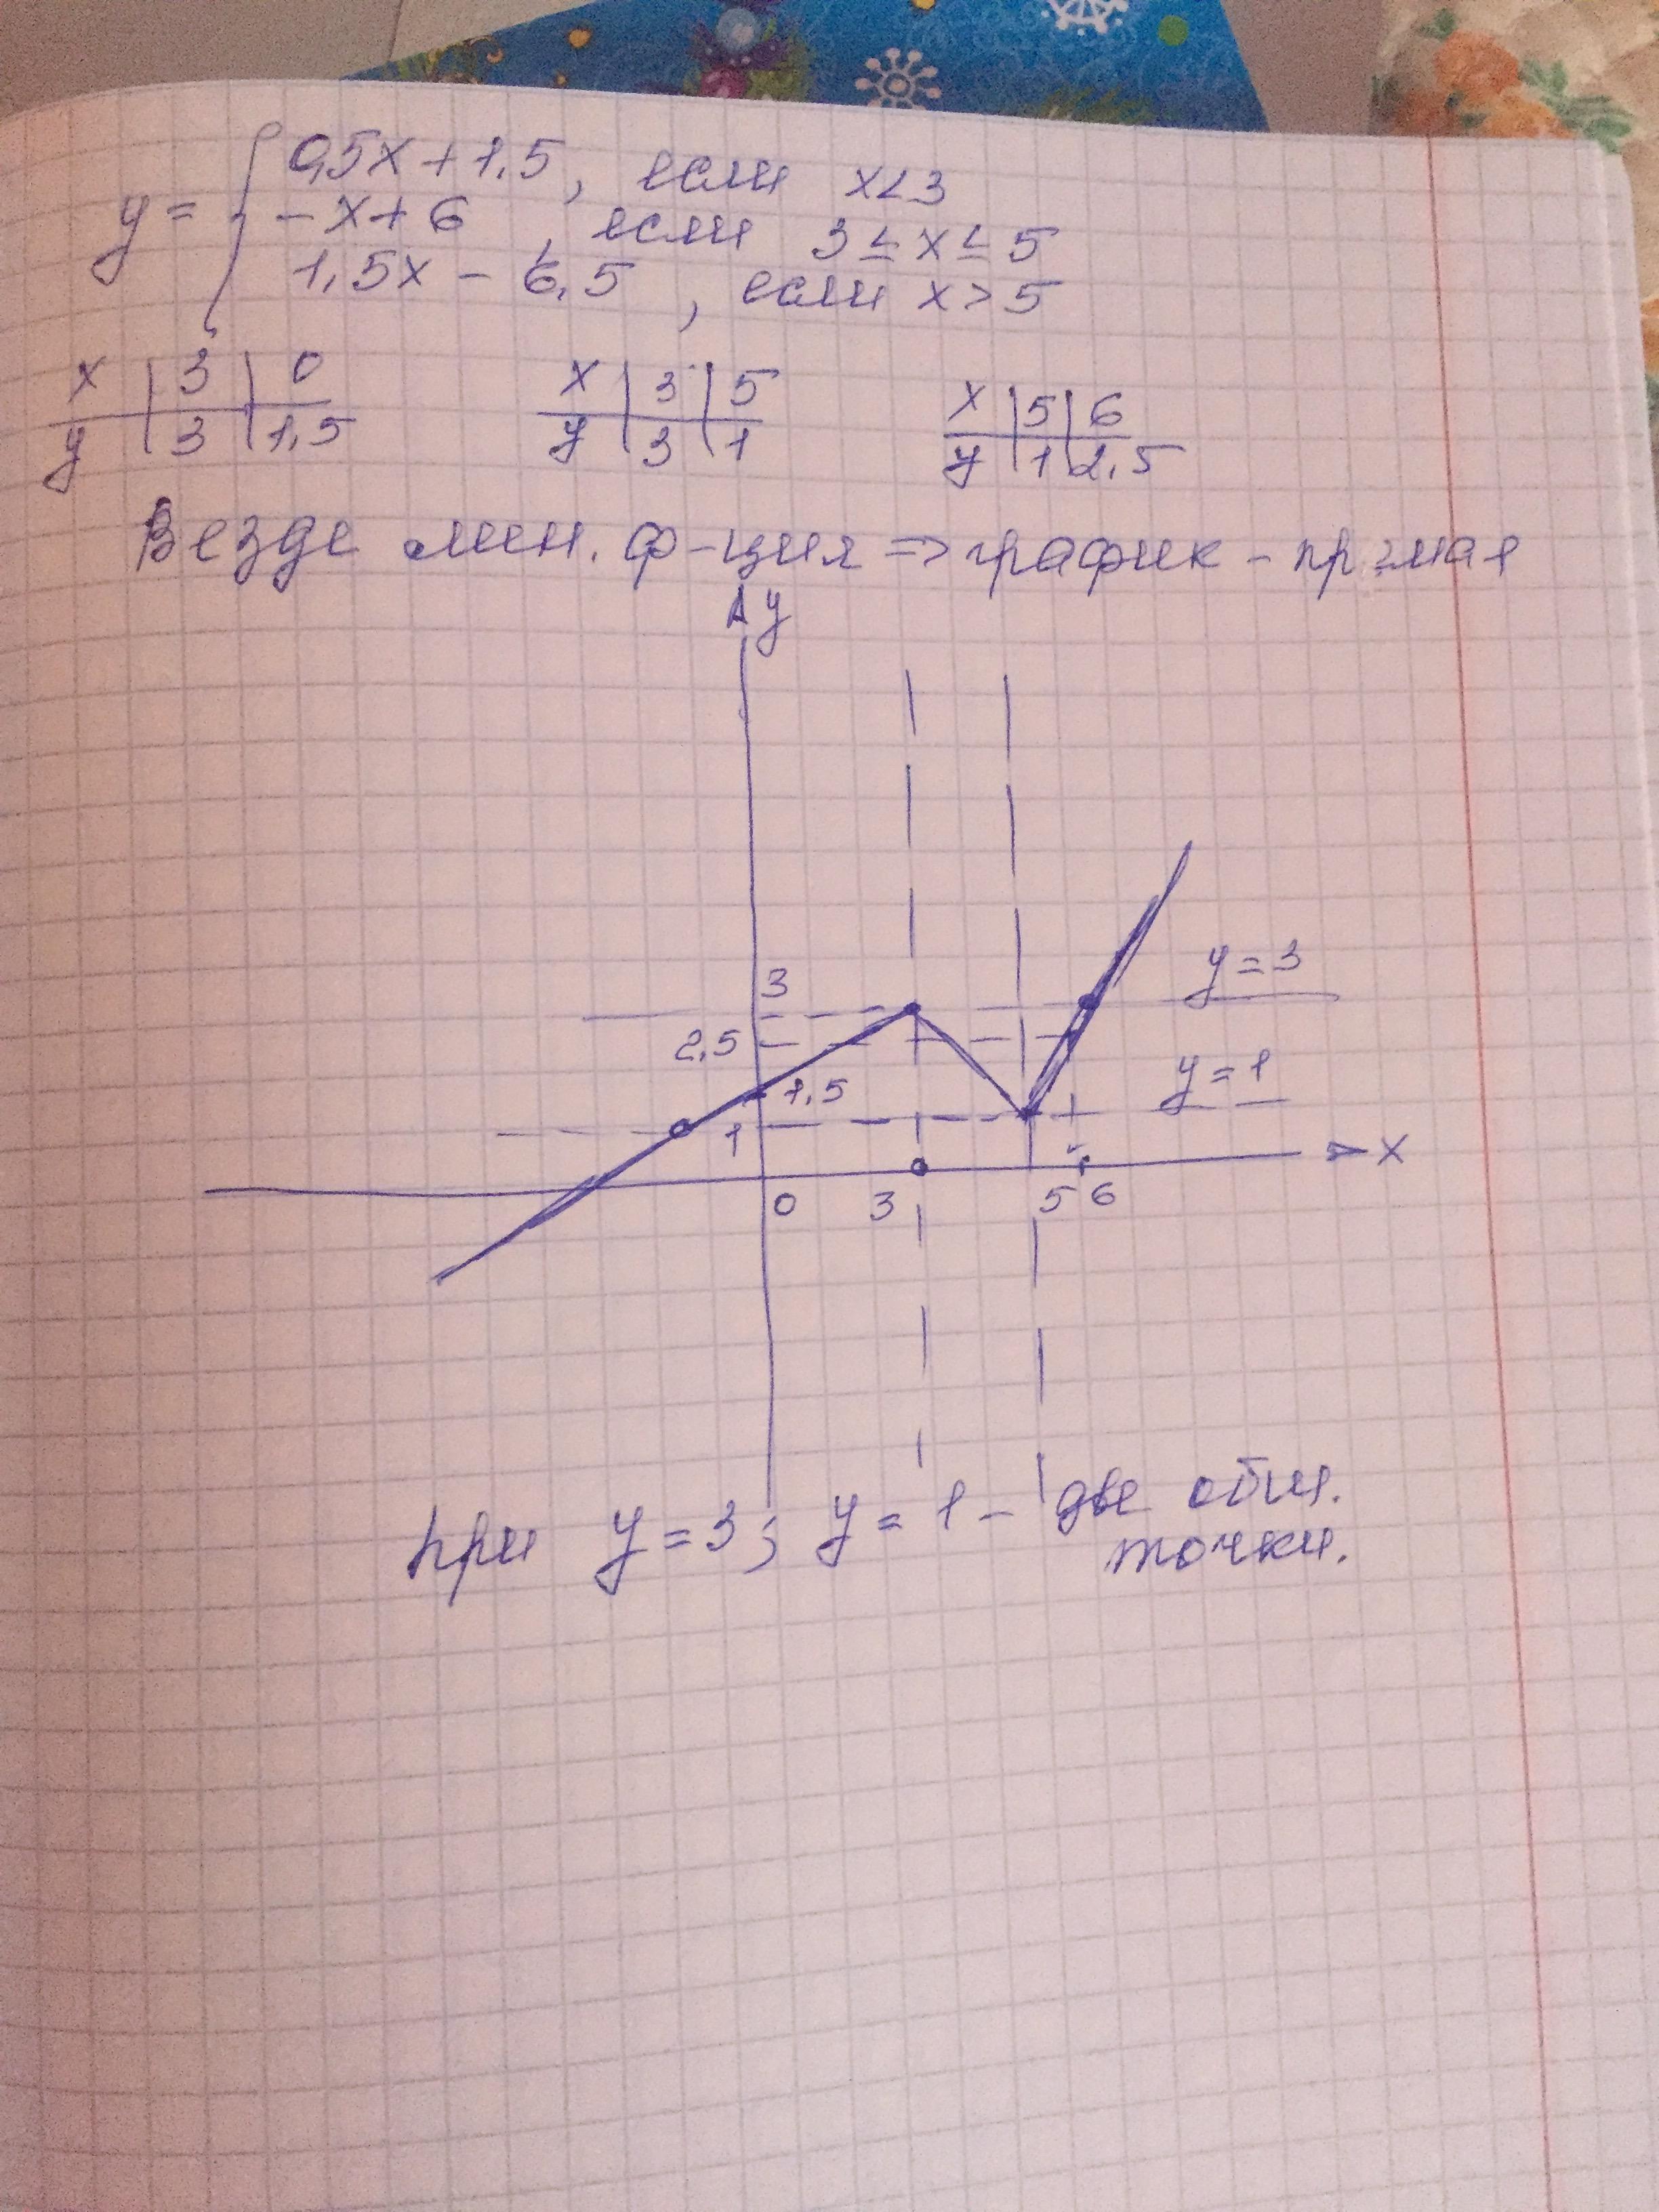 y = { 0,5x + 1,5, если x < 3
- x + 6, если 3 ≤ x ≤ 5
1,5x - 6,5, если x > 5
x | 3 | 0
y | 3 | 1,5
x | 3 | 5
y | 3 | 1
x | 5 | 6
y | 1 | 2,5
Везде лин. ф-ция => график - прямая
y
3
y = 3
2,5
1,5
y = 1
1
x
0 3 5 6
при y = 3; y = 1 - две общ.
точки.